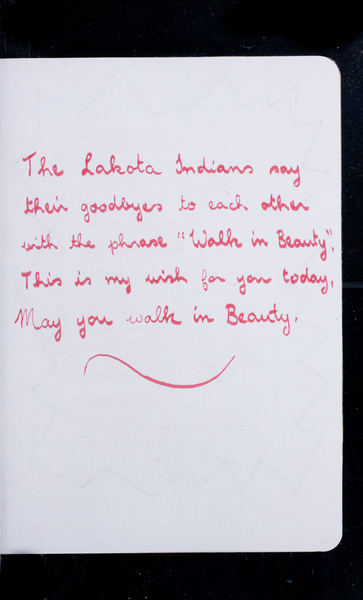 The Lakota Indians say
their goodbyes to each other
with the phrase "Walk in Beauty".
This is my wish for you today,
May you walk in Beauty.